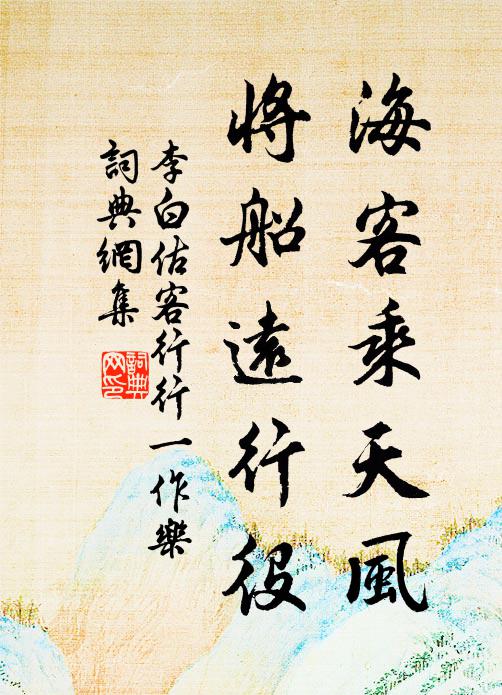 海客乘天風
將船遠行役
李白估客行行一作樂
詞典網集
詞典網印